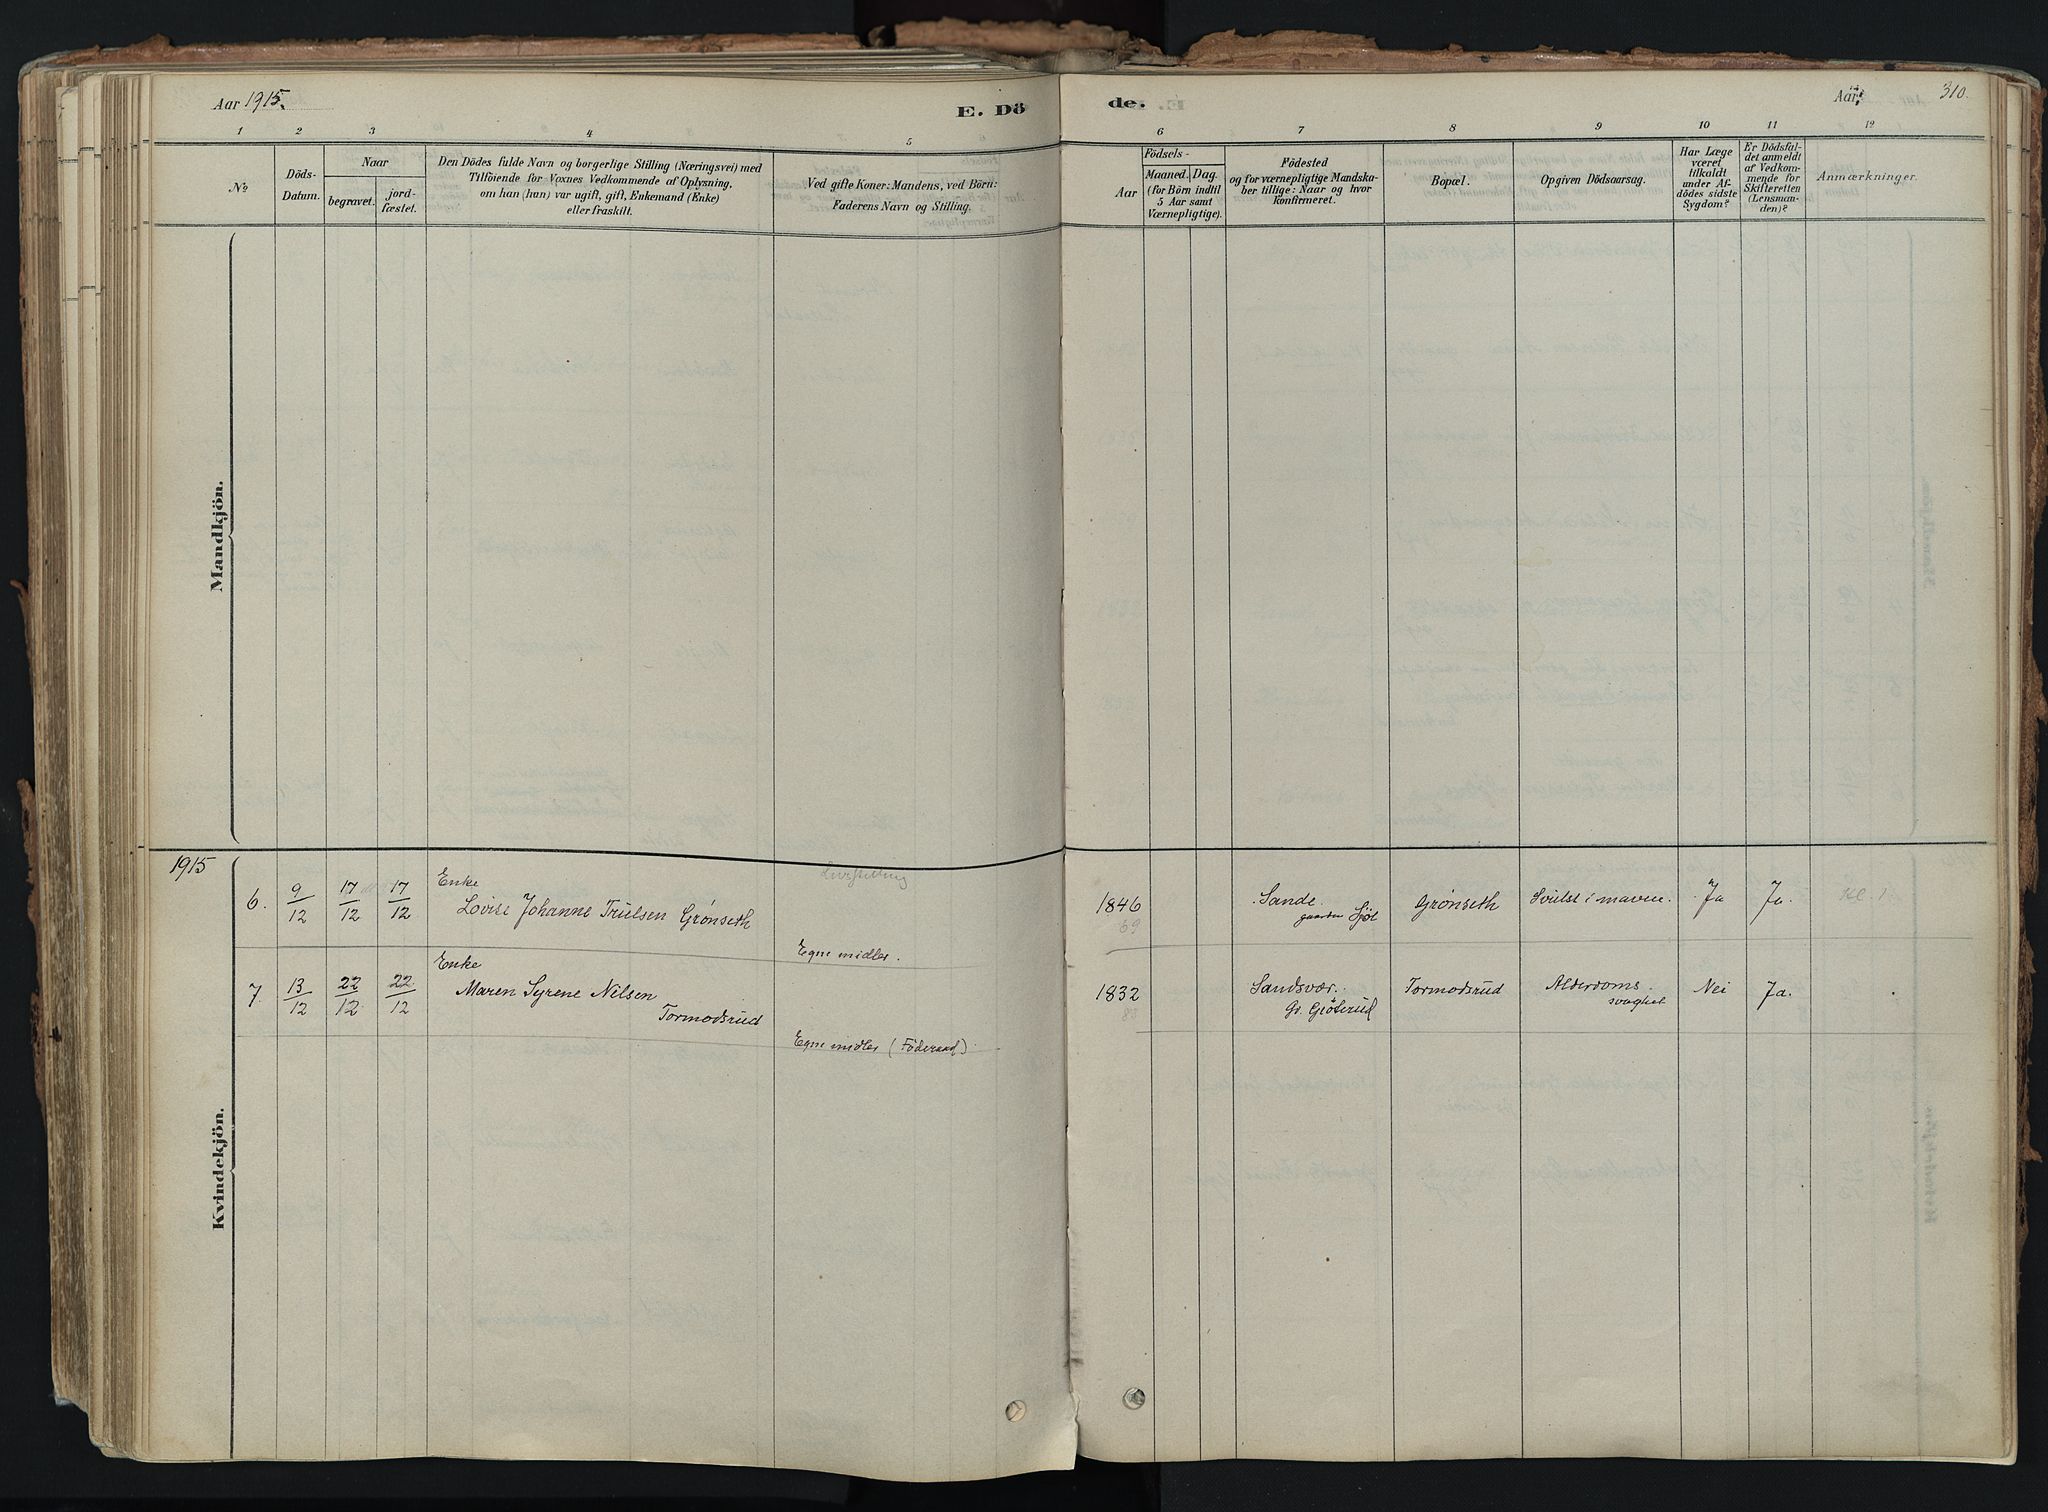 Aar 1915.
E. Dö
de.
Aar
310.
1 2 3 4 5
6 7 8 9 10 11 12
No
Döds-
Datum.
Naar
begravet.
jord-
fæstet.
Den Dödes fulde Navn og borgerlige Stilling (Næringsvei) med
Tilföiende for Voxnes Vedkommende af Oplysning,
om han (hun) var ugift, gift, Enkemand (Enke)
eller fraskilt.
Ved gifte Koner: Mandens, ved Börn:
Faderens Navn og Stilling.
Födsels-
Aar
Maaned. Dag.
(for Börn indtil
5 Aar samt
Værnepligtige).
Födested
og for værnepligtige Mandska-
ber tillige: Naar og hvor
konfirmeret.
Bopæl.
Opgiven Dödsaarsag.
Har Læge
været
tilkaldt
under Af-
dödes sidste
Sygdom?
Er Dödsfal-
det anmeldt
af Vedkom-
mende for
Skifteretten
(Lensman-
den)?
Anmærkninger.
Mandkjön.
1915
Kvindekjön.
6. 9/12 17/12 17/12 Enke
Lovise Johanne Truelsen Grønseth
Livsstilling
Egne midler.
1846
69
Sande.
gaarden Sjøl
Grønseth
Svulst i maven.
Ja
Ja.
Kl. 1.
7. 13/12 22/12 22/12 Enke
Maren Syrene Nilsen
Tormodsrud
Egne midler (Föderaad).
1832
83
Sandsvær.
Gr. Gjöterud
Tormodsrud
Alderdoms.
svaghet
Nei
Ja.